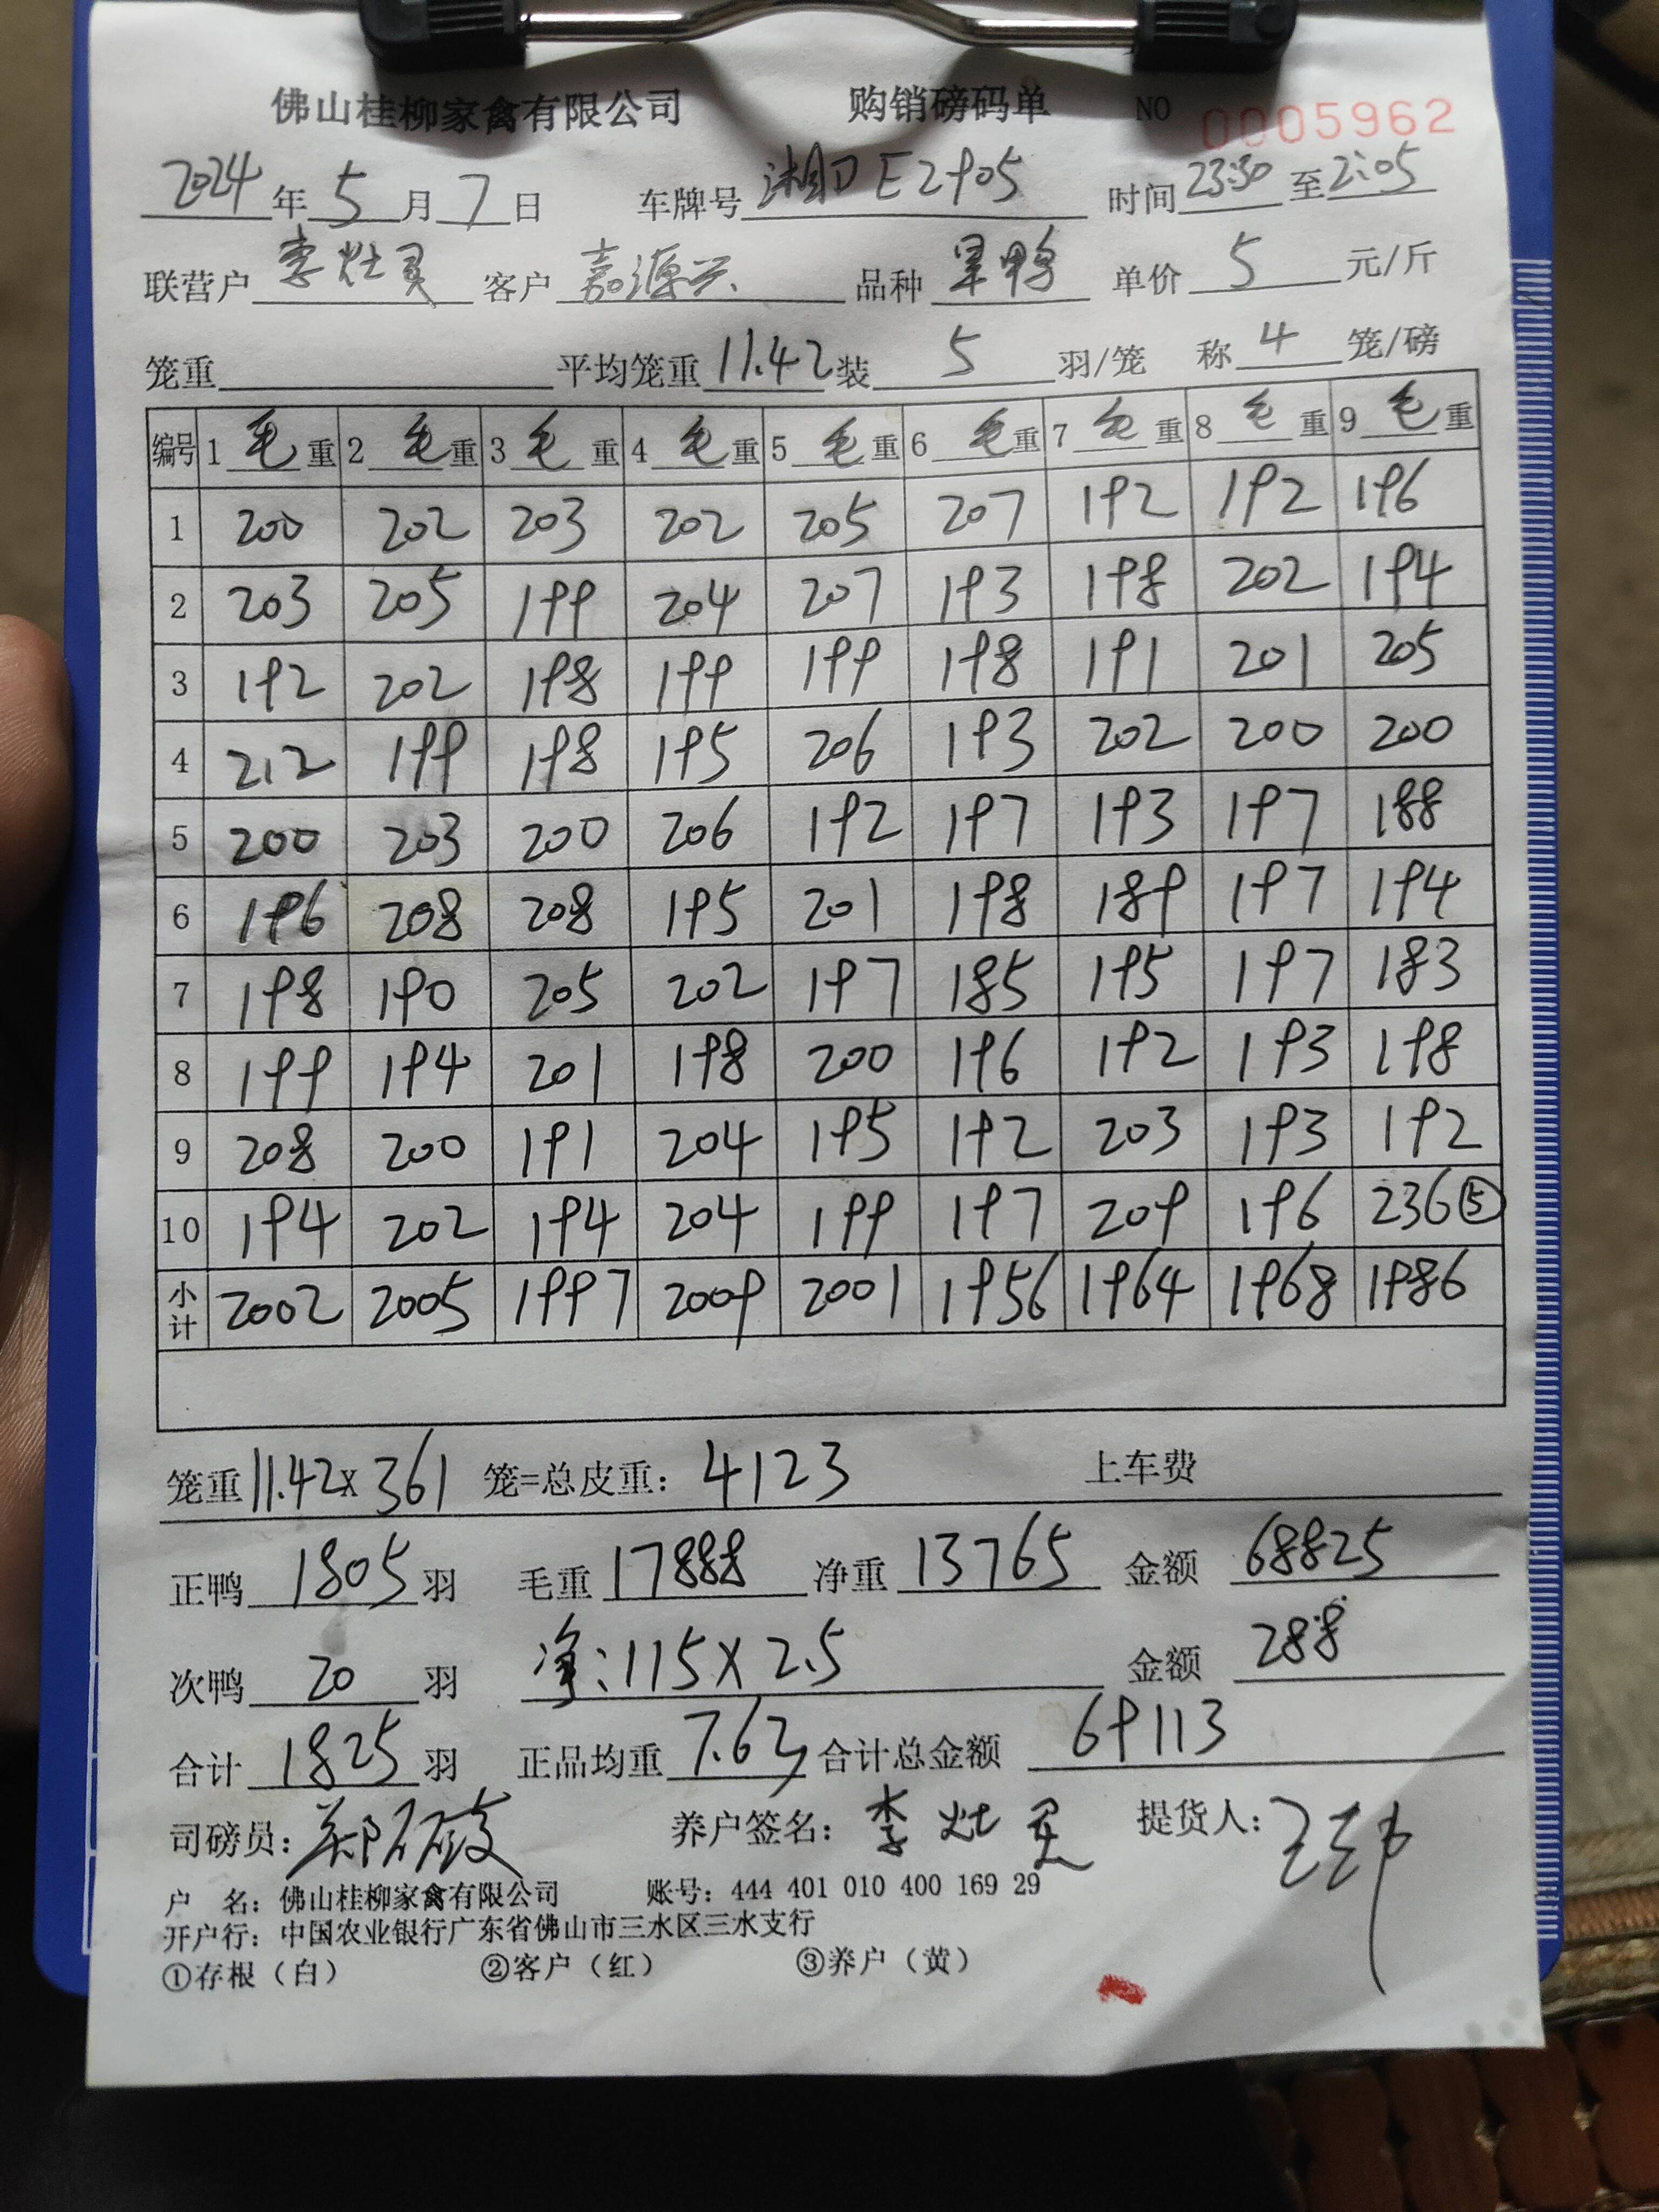 佛山桂柳家禽有限公司 购销磅码单 NO 0005962
2024年5月7日 车牌号湘D E2905 时间23:30至2:05
联营户李灶 客户嘉源兴 品种 鸭 单价5元/斤
笼重 平均笼重11.42装5羽/笼 称4笼/磅
编号 1毛重 2毛重 3毛重 4毛重 5毛重 6毛重 7毛重 8毛重 9毛重
1 200 202 203 202 205 207 192 192 196
2 203 205 199 204 207 193 198 202 194
3 192 202 198 199 199 198 191 201 205
4 212 199 198 195 206 193 202 200 200
5 200 203 200 206 192 197 193 197 188
6 196 208 208 195 201 198 189 197 194
7 198 190 205 202 197 185 195 197 183
8 199 194 201 198 200 196 192 193 198
9 208 200 191 204 195 192 203 193 192
10 194 202 194 204 199 197 209 196 236⑤
小计 2002 2005 1997 2009 2001 1956 1964 1968 1986
笼重11.42×361 笼=总皮重：4123 上车费
正鸭1805羽 毛重17888 净重13765 金额68825
次鸭20羽 净：115×2.5 金额288
合计1825羽 正品均重7.63 合计总金额69113
司磅员：郑 养户签名：李灶 提货人：
户 名：佛山桂柳家禽有限公司 账号：444 401 010 400 169 29
开户行：中国农业银行广东省佛山市三水区三水支行
①存根（白） ②客户（红） ③养户（黄）